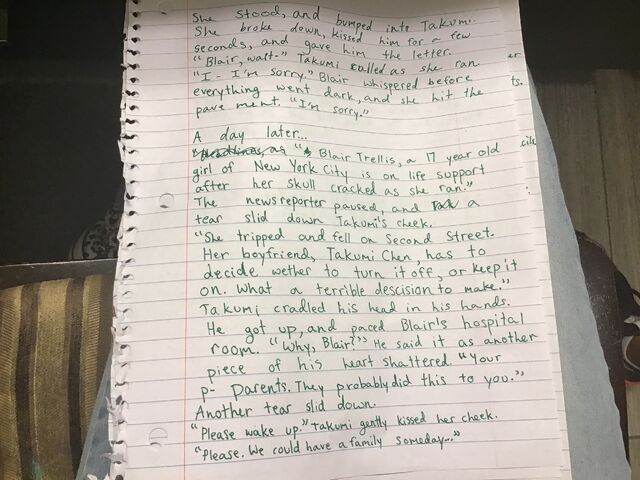 She stood, and bumped into Takumi.
She broke down, kissed him for a few
seconds, and gave him the letter.
"Blair, wait-" Takumi called as she ran.
"I- I'm sorry." Blair whispered before
everything went dark, and she hit the
pavement. "I'm sorry."
A day later...
"Blair Trellis, a 17 year old
girl of New York City is on life support
after her skull cracked as she ran."
The news reporter paused, and a
tear slid down Takumi's cheek.
"She tripped and fell on Second Street.
Her boyfriend, Takumi Chen, has to
decide wether to turn it off, or keep it
on. What a terrible descision to make."
Takumi cradled his head in his hands.
He got up, and paced Blair's hospital
room. "Why, Blair?" He said it as another
piece of his heart shattered. "Your
p- parents. They probably did this to you."
Another tear slid down.
"Please wake up." Takumi gently kissed her cheek.
"Please. We could have a family someday..."